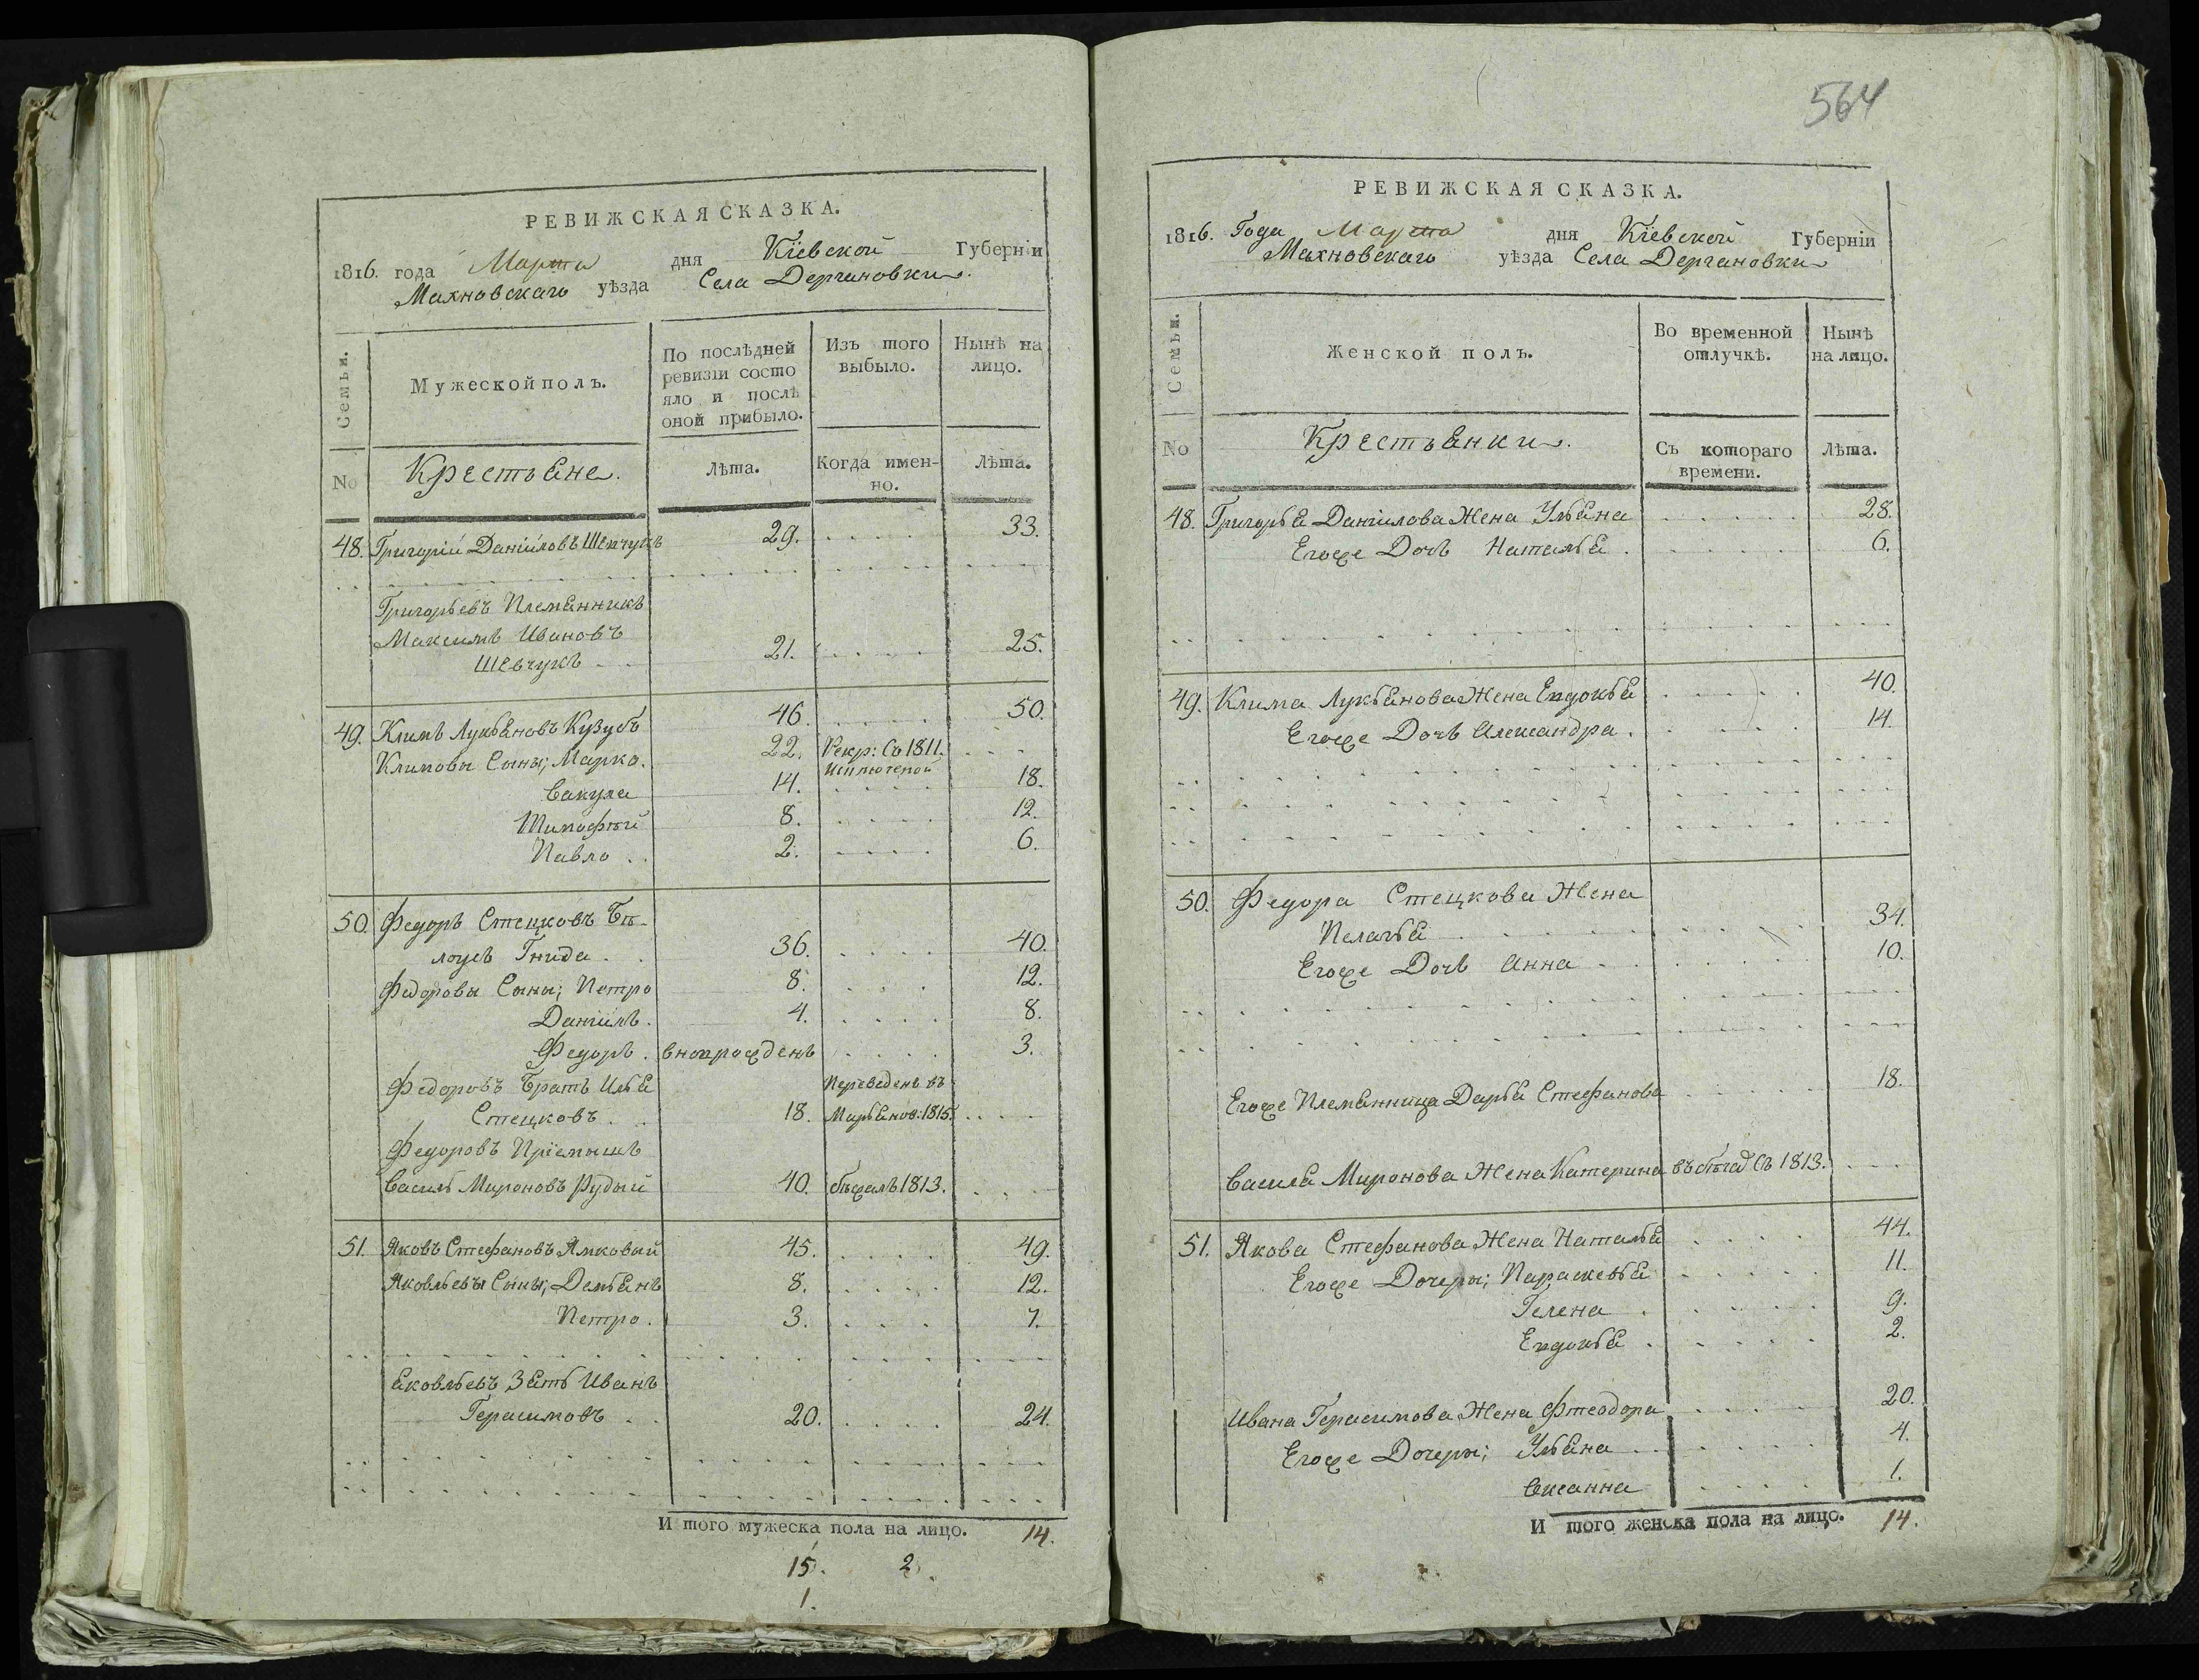 564
РЕВИЖСКАЯ СКАЗКА.
1816. года Марта дня Кіевской Губерніи
Махновскаго уѣзда Села Дергановки.
Семьи.
Мужеской полъ.
По послѣдней ревизіи состо
яло и послѣ оной прибыло.
Изъ того выбыло.
Нынѣ на лицо.
No
Крестьяне.
Лѣта.
Когда имен-
но.
Лѣта.
48. Григорій Даніиловъ Шевчукъ 29. 33.
Григорьевъ Племянникъ
Максимъ Ивановъ
Шевчукъ 21. 25.
49. Климъ Лукьяновъ Кузубъ 46. 50.
Климовы Сыны; Марко. 22. Рекр: Съ 1811.
Вакула 14. 18.
Тимофѣй 8. 12.
Павло 2. 6.
50. Федоръ Стецковъ Бѣ-
лоусъ Гнида 36. 40.
Федоровы Сыны; Петро 8. 12.
Даніилъ. 4. 8.
Федоръ. вновърожденъ 3.
Федоровъ Братъ Илья Переведенъ въ
Стецковъ. 18. Марьянов: 1815.
Федоровъ Пріемышъ
Василь Мироновъ Рудый 40. бѣжалъ 1813.
51. Яковъ Стефановъ Ямковый 45. 49.
Яковлевы Сыны; Демьянъ 8. 12.
Петро. 3. 7.
Яковлевъ Зять Иванъ
Герасимовъ 20. 24.
И того мужеска пола на лицо. 14.
15. 2.
1.
РЕВИЖСКАЯ СКАЗКА.
1816. Года Марта дня Кіевской Губерніи
Махновскаго уѣзда Села Дергановки
Семьи.
Женской полъ.
Во временной отлучкѣ.
Нынѣ на лицо.
No
Крестьянки.
Съ котораго времени.
Лѣта.
48. Григорья Даніилова Жена Ульяна 28.
Егоже Дочь Наталья. 6.
49. Клима Лукьянова Жена Евдокья 40.
Егоже Дочь Александра. 14.
50. Федора Стецкова Жена
Пелагья 34.
Егоже Дочь Анна 10.
Егоже Племянница Дарья Стефанова 18.
Василя Миронова Жена Катерина въ бѣгах Съ 1813.
51. Якова Стефанова Жена Наталья 44.
Егоже Дочеры; Параскевья 11.
Гелена 9.
Евдокья 2.
Ивана Герасимова Жена Фтеодора 20.
Егоже Дочеры; Ульяна 4.
Оксанна 1.
И того женска пола на лицо. 14.